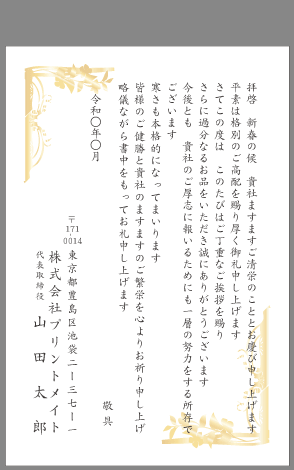 拝啓　新春の候　貴社ますますご清栄のこととお慶び申し上げます
平素は格別のご高配を賜り厚く御礼申し上げます
さてこの度は　このたびはご丁重なご挨拶を賜り
さらに過分なるお品をいただき誠にありがとうございます
今後とも　貴社のご厚志に報いるためにも一層の努力をする所存で
ございます
寒さも本格的になってまいります
皆様のご健勝と貴社のますますのご繁栄を心よりお祈り申し上げ
略儀ながら書中をもってお礼申し上げます
敬具
令和〇年〇月
〒171 0014
東京都豊島区池袋二ー三七ー一
株式会社プリントメイト
代表取締役　山田太郎